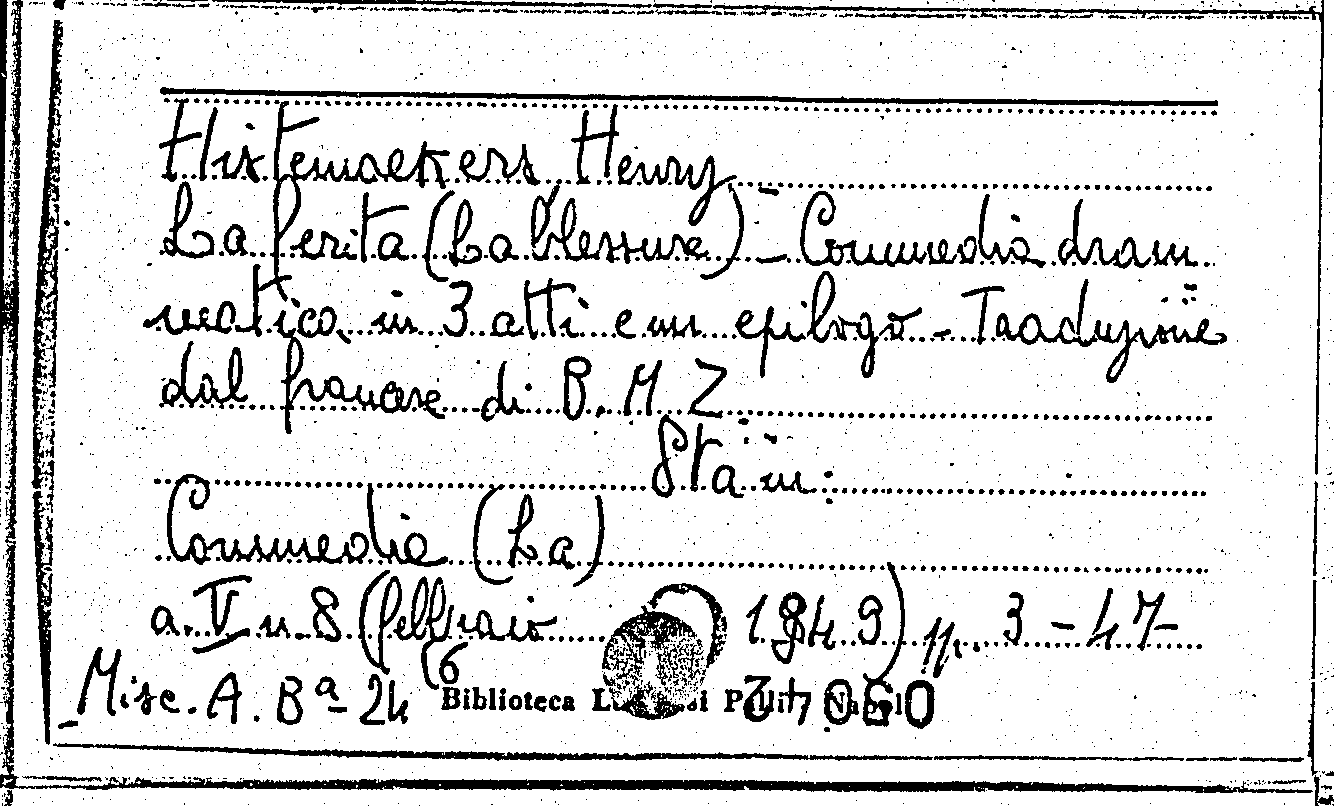 Kistemaekers Henry -
La ferita (La blessure) - Commedia dram
matica in 3 atti e un epilogo - Traduzione
dal francese di B. M. Z
Sta in:
Commedia (La)
a. V n. 8 (febbraio 1949) pp. 3 - 47 -
Misc. A. Bª 24 (6
Biblioteca Lucchesi Palli Napoli